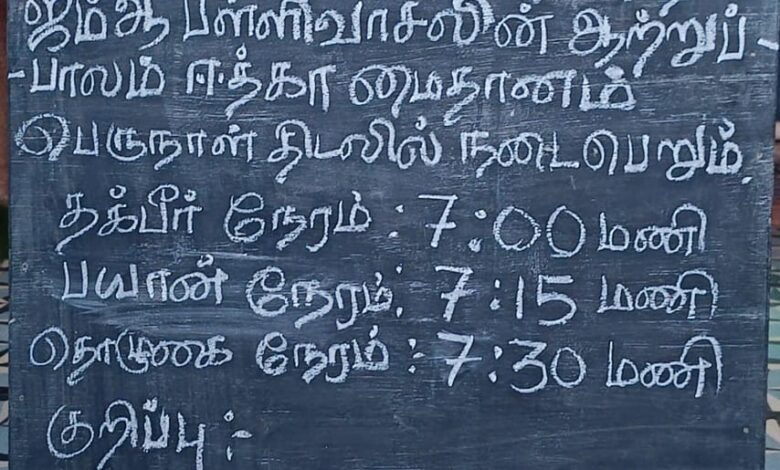 ஜம்ஆ பள்ளிவாசலின் ஆற்றுப்
-பாலம் ஈத்கா மைதானம்
பெருநாள் திடலில் நடைபெறும்.
தக்பீர் நேரம் : 7:00 மணி
பயான் நேரம் : 7:15 மணி
தொழுகை நேரம் : 7:30 மணி
குறிப்பு :-